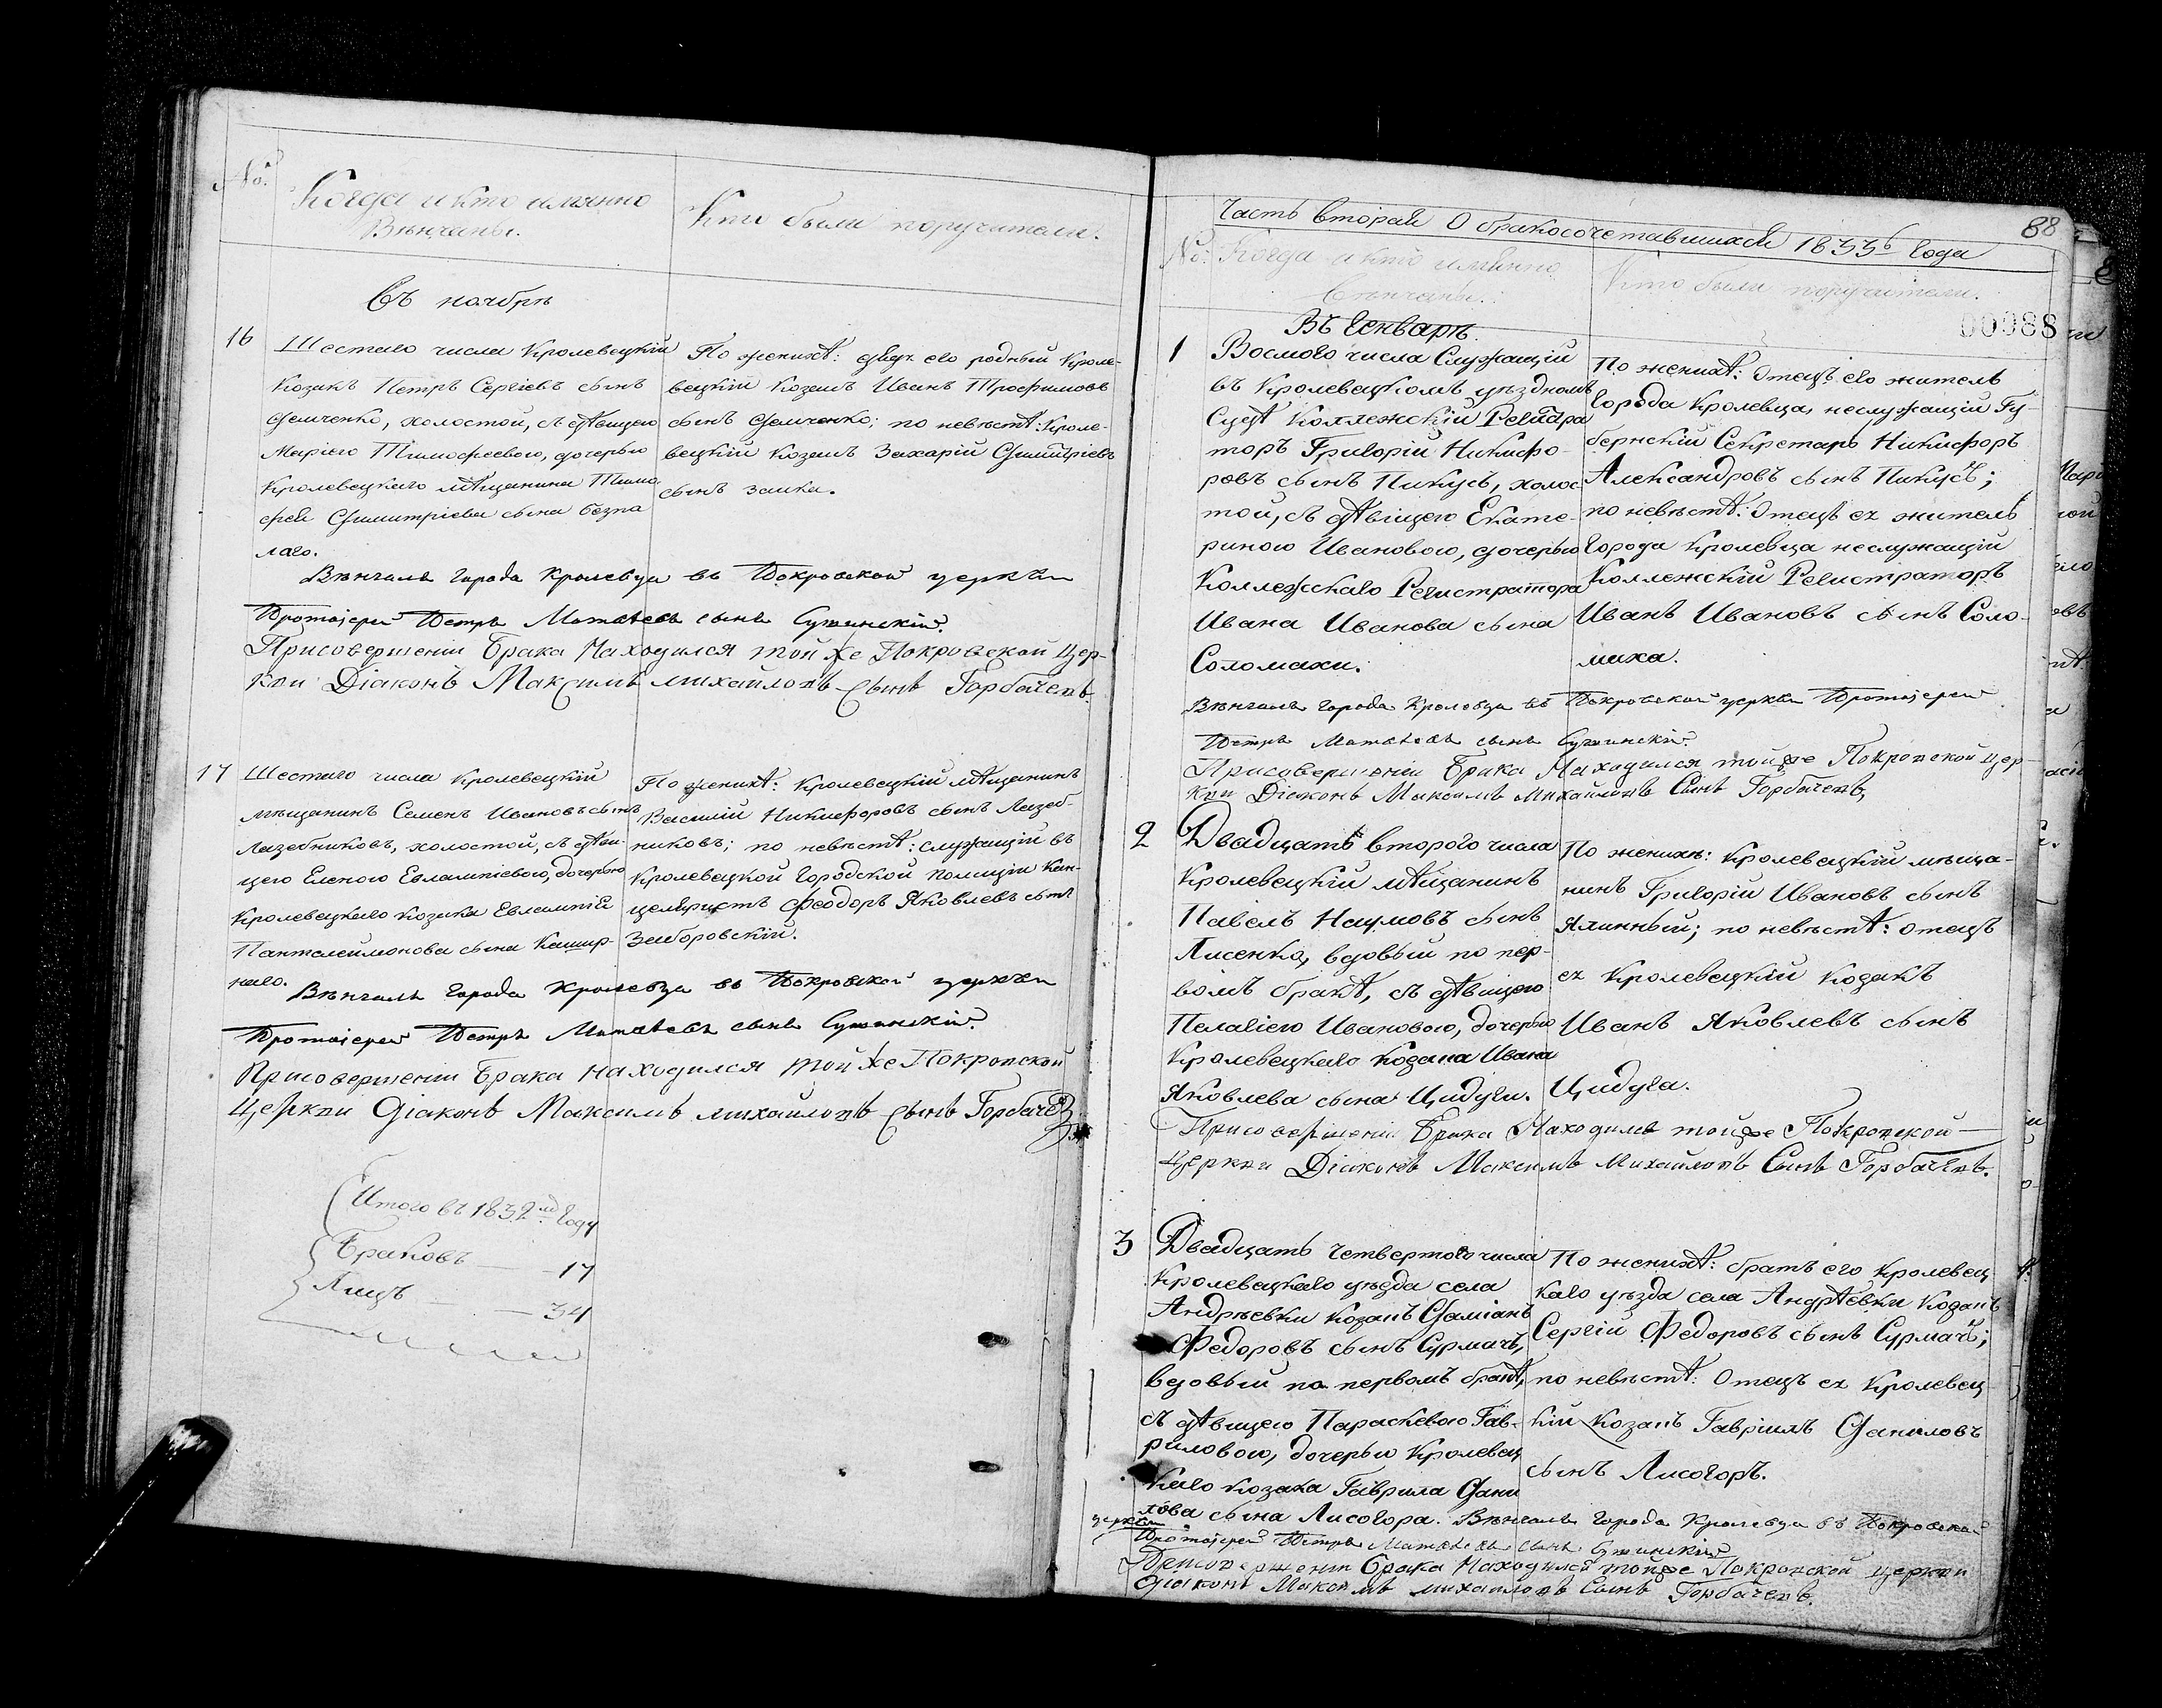 №
Когда и кто имянно
Вѣнчаны.
Кто были поручители.
Въ ноябрѣ
16
Шестаго числа Кролевецкій
Козакъ Петръ Сергіевъ сынъ
Демченко, холостой, съ дѣвицею
Маріею Тимофеевою, дочерью
Кролевецкаго мѣщанина Тимо
фея Димитріева сына безпа
лаго.
По женихѣ: дядъ его родный Кроле-
вецкій Козакъ Иванъ Трофимовъ
сынъ Демченко; по невѣстѣ: Кроле-
вецкій Козакъ Захарій Димитріевъ
сынъ заика.
Вѣнчалъ города Кролевца въ Покровской церкви
Протоіерей Петръ Матвѣевъ сынъ
Присовершеніи Брака Находился той же Покровской Цер-
кви Діаконъ Максимъ михайловъ Сынъ Горбачевъ.
17
Шестаго числа Кролевецкій
мѣщанинъ Семенъ Ивановъ сынъ
Лазебниковъ, холостой, съ дѣви-
цею Еленою Евлампіевою, дочерью
Кролевецкаго козака Евлампія
Панталеймонова сына Кашир-
наго.
По женихѣ: Кролевецкій мѣщанинъ
Василій Никифоровъ сынъ Лазеб-
никовъ; по невѣстѣ: служащій въ
Кролевецкой Городской полиціи Кан-
целяристъ Феодоръ Яковлевъ сынъ
Заборовскій.
Вѣнчалъ города Кролевца въ Покровской церкви
Протоіерей Петръ Матвѣевъ сынъ
Присовершеніи Брака находился той же Покровской
Церкви Діаконъ Максимъ михайловъ Сынъ Горбачевъ
Итого въ 1832мъ Году
Браковъ — 17
Лицъ — — 34
88
Часть вторая О бракосочетавшихся 1833 года
№ Когда и кто имянно
вѣнчаны.
Кто были поручители.
00088
Въ Генварѣ
1
Восмого числа Служащій
въ Кролевецкомъ уѣздномъ
Судѣ Коллежскій Регистра
торъ Григорій Никифо-
ровъ сынъ Пикусъ, холос
той, съ дѣвицею Екате-
риною Ивановою, дочерью
Коллежскаго Регистратора
Ивана Иванова сына
Соломахи.
По женихѣ: Отецъ его житель
города Кролевца, неслужащій Гу-
бернскій Секретарь Никифоръ
Александровъ сынъ Пикусъ;
по невѣстѣ: Отецъ ея житель
города Кролевца неслужащій
Коллежскій Регистраторъ
Иванъ Ивановъ сынъ Соло-
маха.
Вѣнчалъ города Кролевца въ Покровской церкви Протоіерей
Петръ Матвѣевъ сынъ
Присовершеніи Брака Находился тойже Покровской цер-
кви Діаконъ Максимъ Михайловъ Сынъ Горбачевъ,
2
Двадцать второго числа
Кролевецкій мѣщанинъ
Павелъ Наумовъ сынъ
Лисенко, вдовый по пер-
вомъ бракѣ, съ дѣвицею
Пелагіею Ивановою, дочерью
Кролевецкаго козака Ивана
Яковлева сына Цидуги.
По женихѣ: Кролевецкій мѣща-
нинъ Григорій Ивановъ сынъ
Ялинный; по невѣстѣ: отецъ
ея Кролевецкій Козакъ
Иванъ Яковлевъ сынъ
Цидуга.
Присовершеніи Брака Находилъ тойже Покровской
Церкви Діаконъ Максимъ Михайловъ Сынъ Горбачевъ.
3
Двадцать четвертого числа
Кролевецкаго уѣзда села
Андрѣевки козакъ Даміанъ
Федоровъ сынъ Сурмачъ,
вдовый по первомъ бракѣ,
съ дѣвицею Параскевою Гав-
риловою, дочерью Кролевец
каго козака Гаврила Дани
лова сына Лисогора.
По женихѣ: братъ его Кролевец
каго уѣзда села Андрѣевки Козакъ
Сергій Федоровъ сынъ Сурмачъ;
по невѣстѣ: Отецъ ея Кролевец
кій Козакъ Гавріилъ Даниловъ
сынъ Лисогоръ.
Вѣнчалъ города Кролевца въ Покровской
церкви
Протоіерей Петръ Матвѣевъ сынъ
Присовершеніи Брака Находился тойже Покровской церкви
Діаконъ Максимъ михаиловъ Сынъ Горбачевъ.